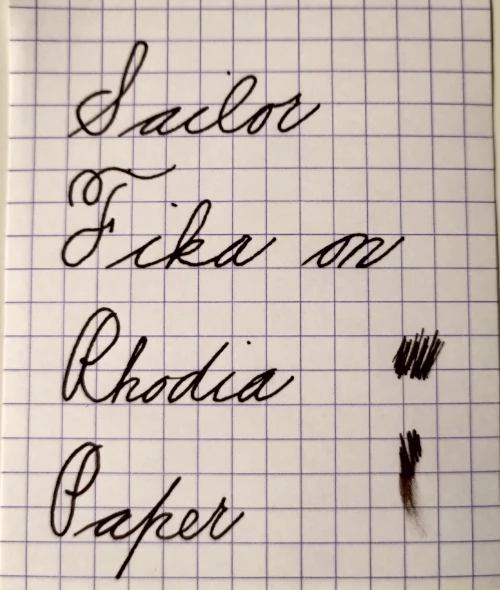 Sailor
Fika on
Rhodia
Paper